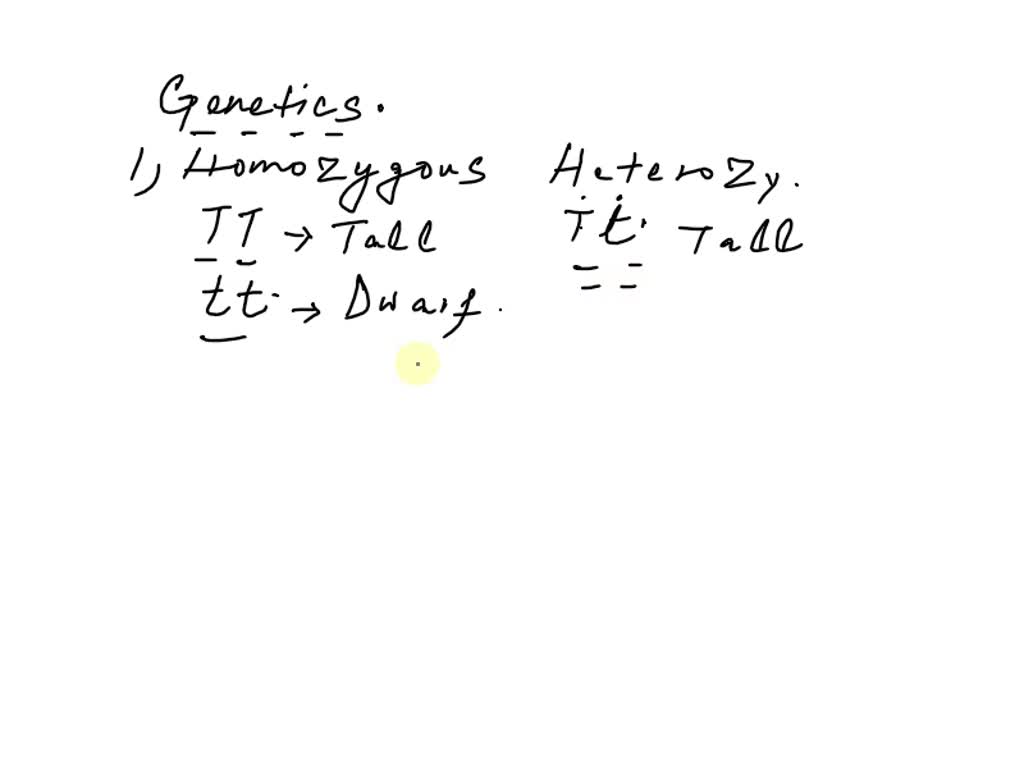 Genetics.
1, Homozygous Heterozy.
TT → Tall Tt. Tall
tt. → Dwarf.